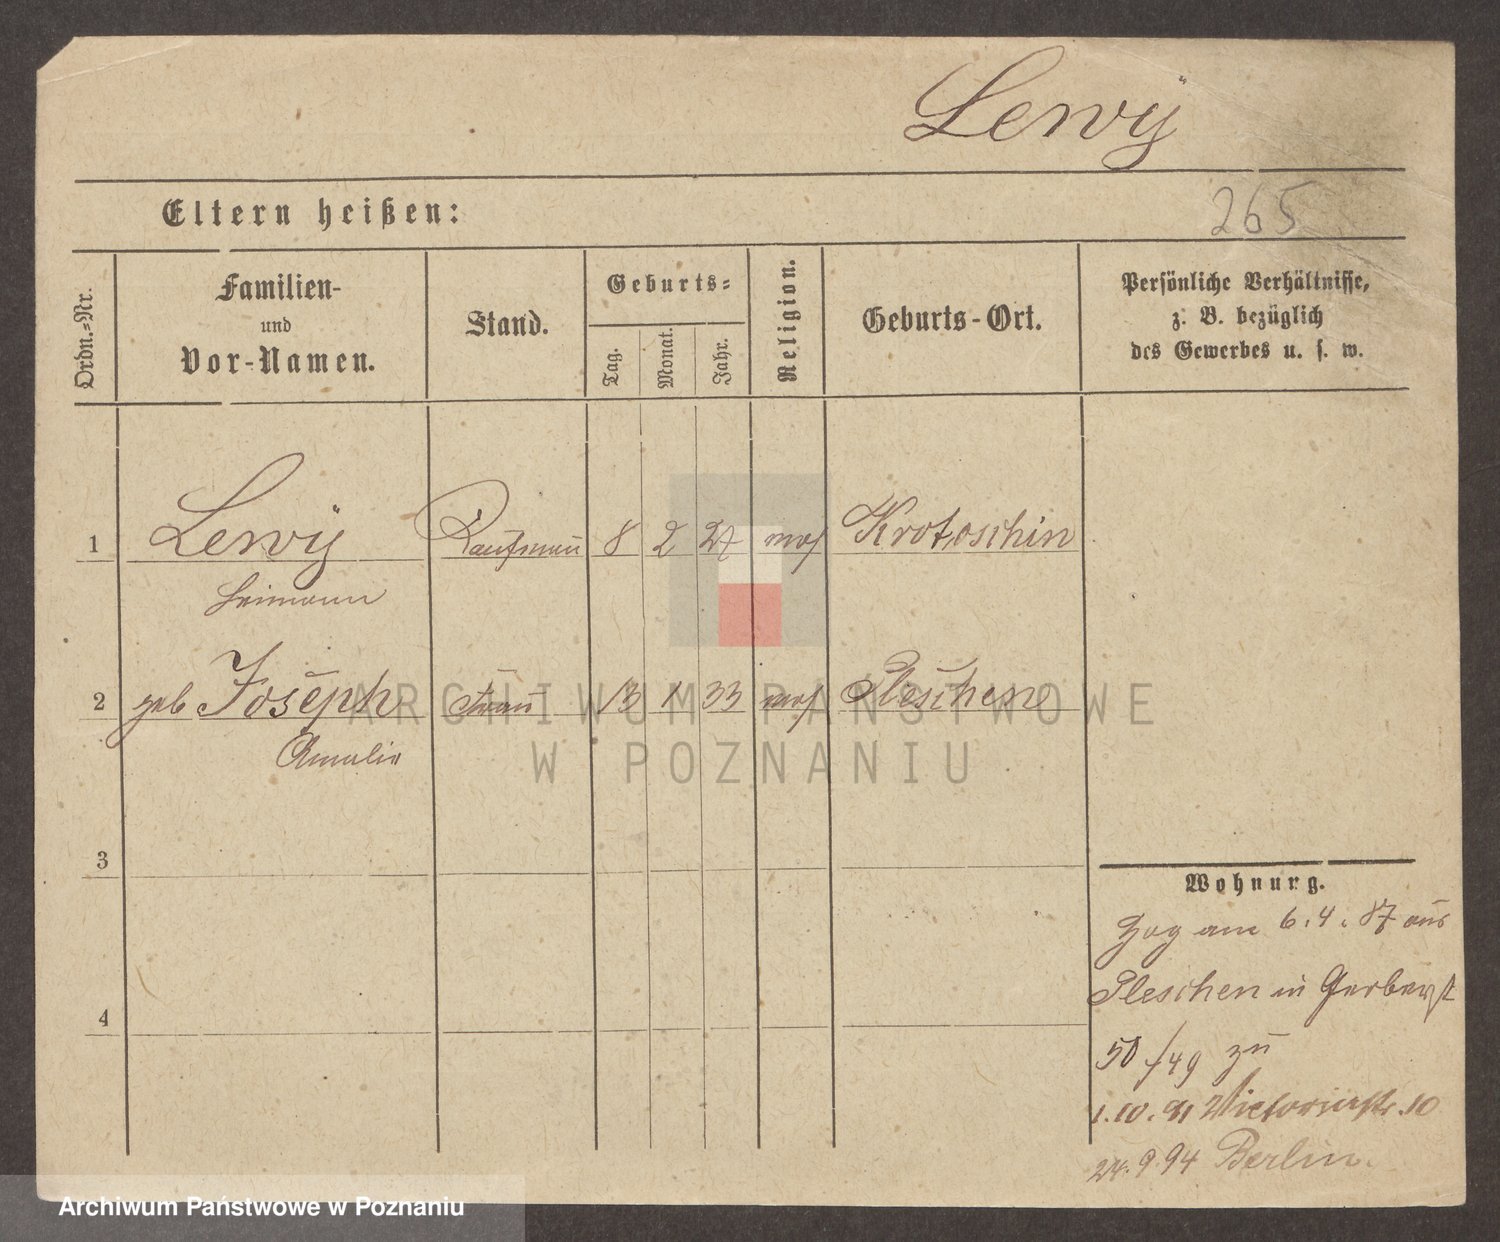 Lewÿ
Eltern heißen:
265
Ordn.=Nr.
Familien-
und
Vor-Namen.
Stand.
Geburts=
Tag.
Monat.
Jahr.
Religion.
Geburts-Ort.
Persönliche Verhältnisse,
z. B. bezüglich
des Gewerbes u. s. w.
1 Lewÿ Kaufmann 8 2 27 mos Krotoschin
Heimann
2 geb Joseph Frau 13 1 33 mos Pleschen
Amalie
3
4
Wohnung.
Zog am 6.4.87 aus
Pleschen in Gerberst
50/49 zu
1.10.91 Victoriastr. 10
24.9.94 Berlin.
ARCHIWUM PAŃSTWOWE
W POZNANIU
Archiwum Państwowe w Poznaniu